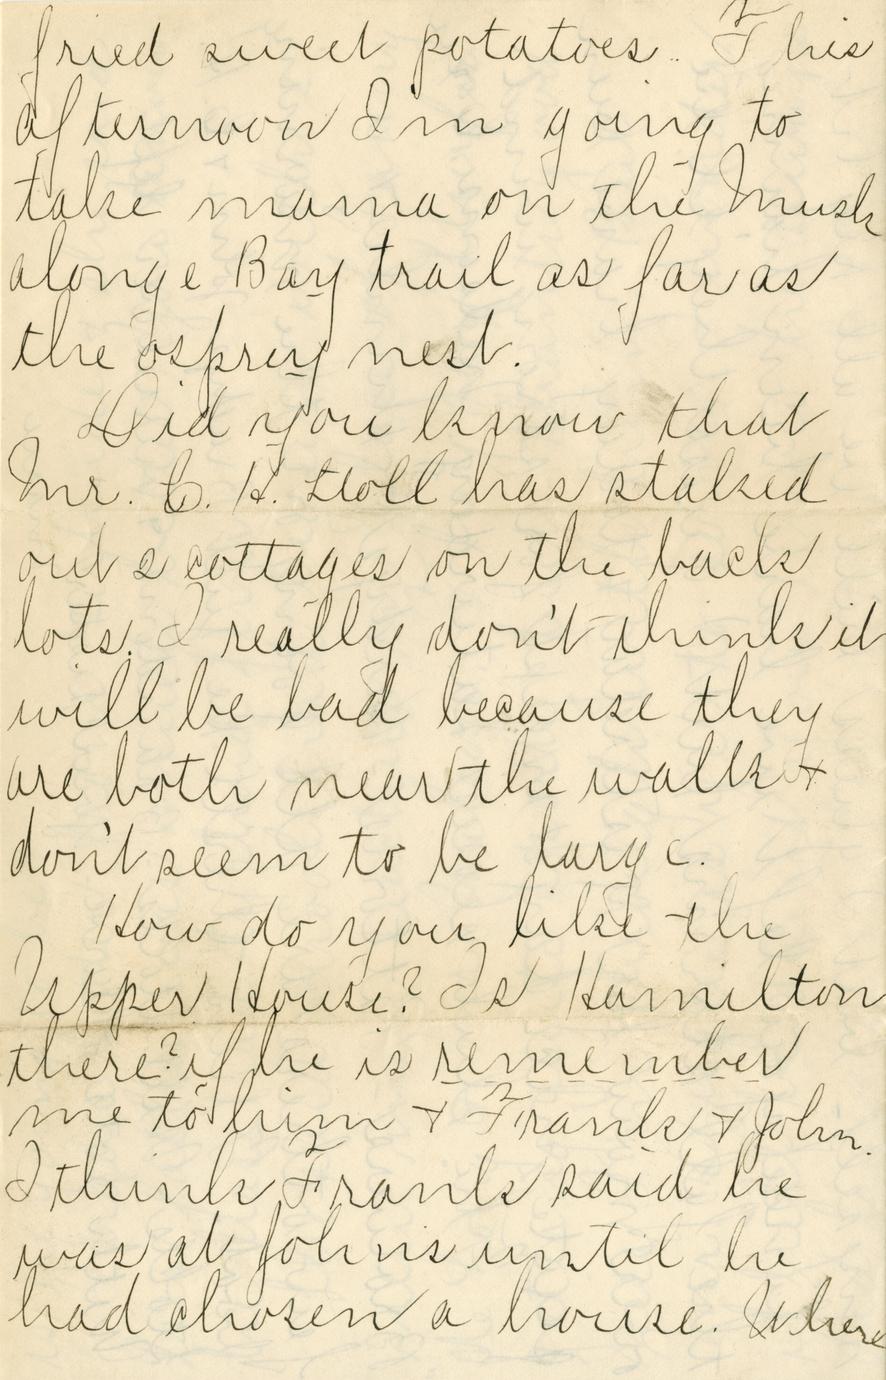 fried sweet potatoes.. This
afternoon I'm going to
take mama on the Musk
alonge Bay trail as far as
the osprey nest.
Did you know that
Mr. C. H. Stoll has staked
out 2 cottages on the back
lots. I really don't think it
will be bad because they
are both near the walk &
don't seem to be large.
How do you like the
Upper House? Is Hamilton
there? if he is remember
me to him & Frank & John.
I think Frank said he
was at Johns until he
had chosen a house. Where